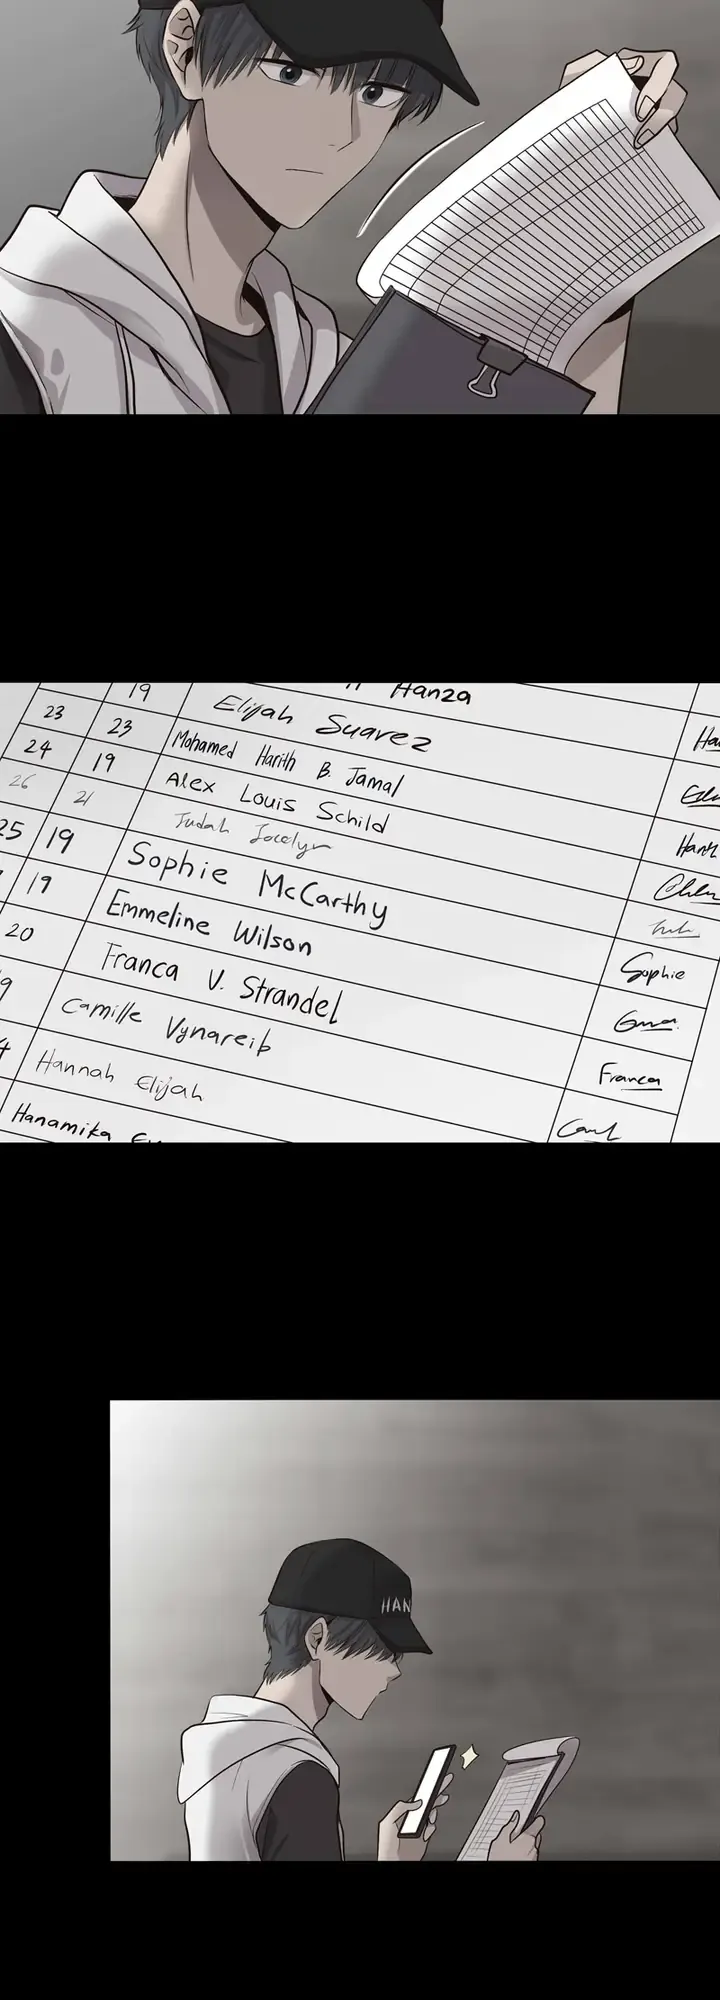 19 Hanza
23 23 Elijah Suarez
24 19 Mohamed Harith B. Jamal
26 21 Alex Louis Schild
25 19 Judah Jocelyn
19 Sophie McCarthy Sophie
20 Emmeline Wilson
Franca V. Strandel Franca
Camille Vynareib
Hannah Elijah
Hanamika
HAN